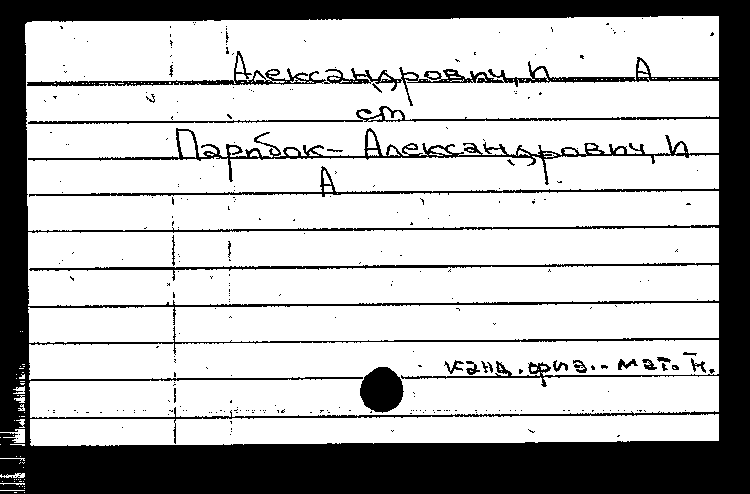 Александрович, И А
ст
Парибок-Александрович, И
А
канд. физ.-мат. н.